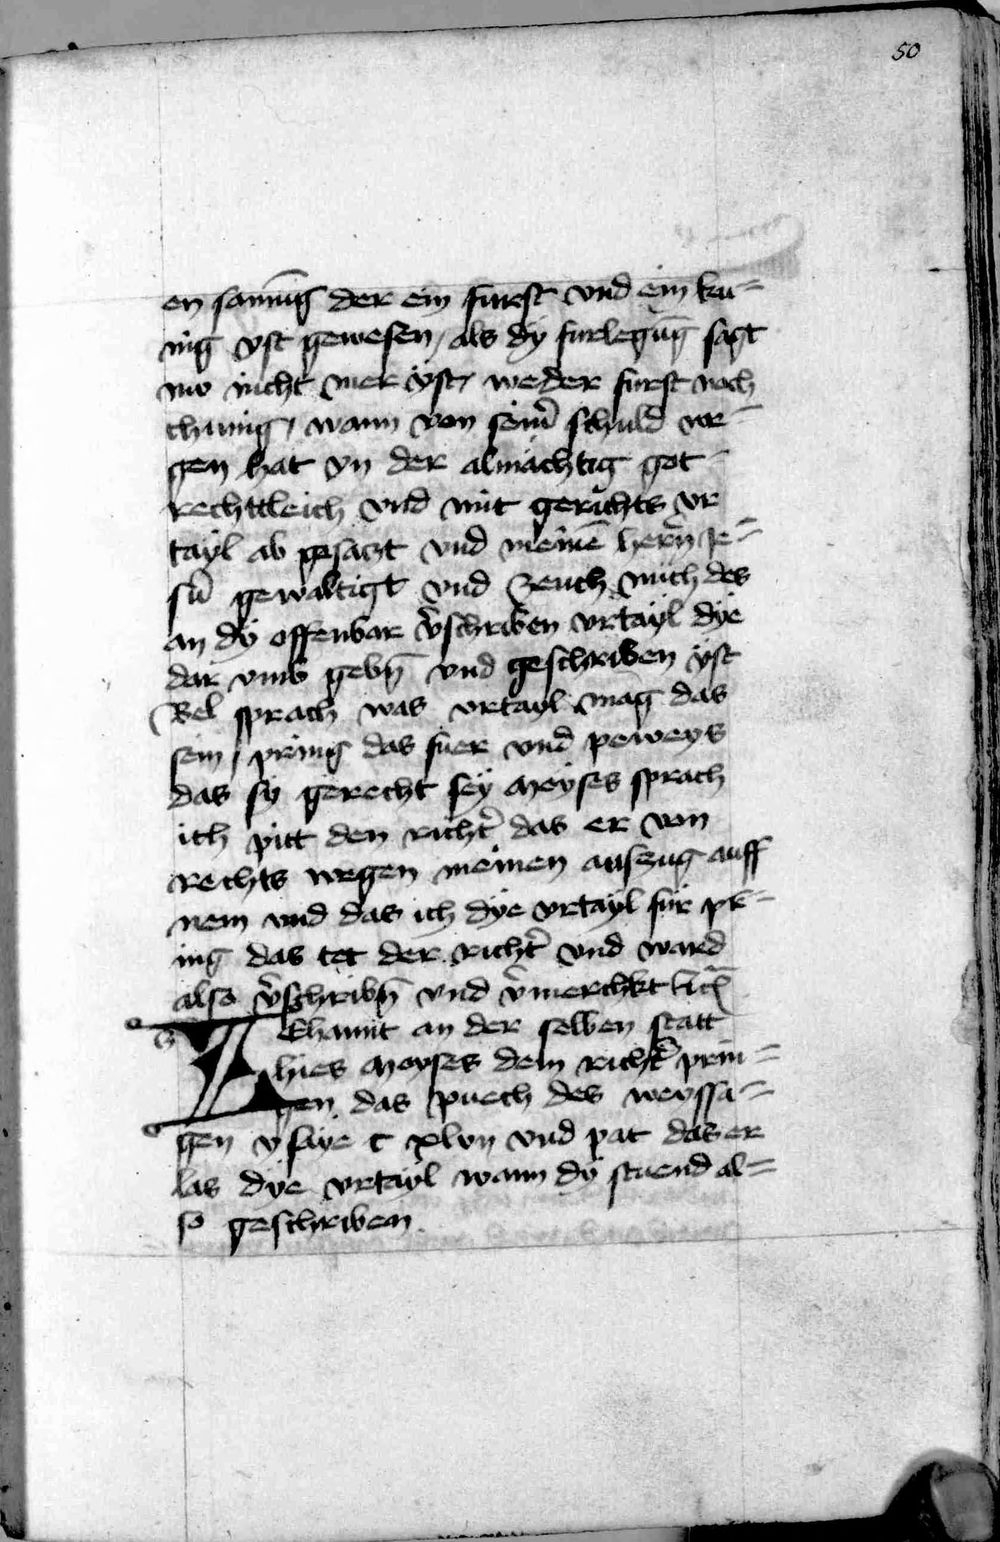 50
en samūg der ein furst vnd ein ku=
nig yst gewesen / als dÿ furlegūg sagt
nw nicht mer ÿst / weder furst noch
chunig / wann von seinͬ schuld we=
gen hat yn der almächtig got
rechttleich vnd mit gerichts vr
tayl ab gesaczt vnd meinē hern̄ Je=
sū gewaltigt vnd zeuch mich des
an dÿ offenbar v̄schriben vrtayl dye
dar vmb gebn̄ vnd geschriben ÿst
Bel sprach was vrtayl mag das
sein / pring das fuer vnd peweys
das sy gerecht seÿ Moyses sprach
ich pitt den richt̄ das er von
rechts wegen meinen auszug auff
nem vnd das ich dye vrtayl für pr=
ing das tet der richt̄ vnd ward
also v̄schribn̄ vnd v̄merchkt
Zehannt an der selben statt
hies Moyses dem richt̄ prin=
gen das puech des weyssa=
gen ysaye c xlvii vnd pat das er
las dye vrtayl wann dÿ stuend al=
so geschriben